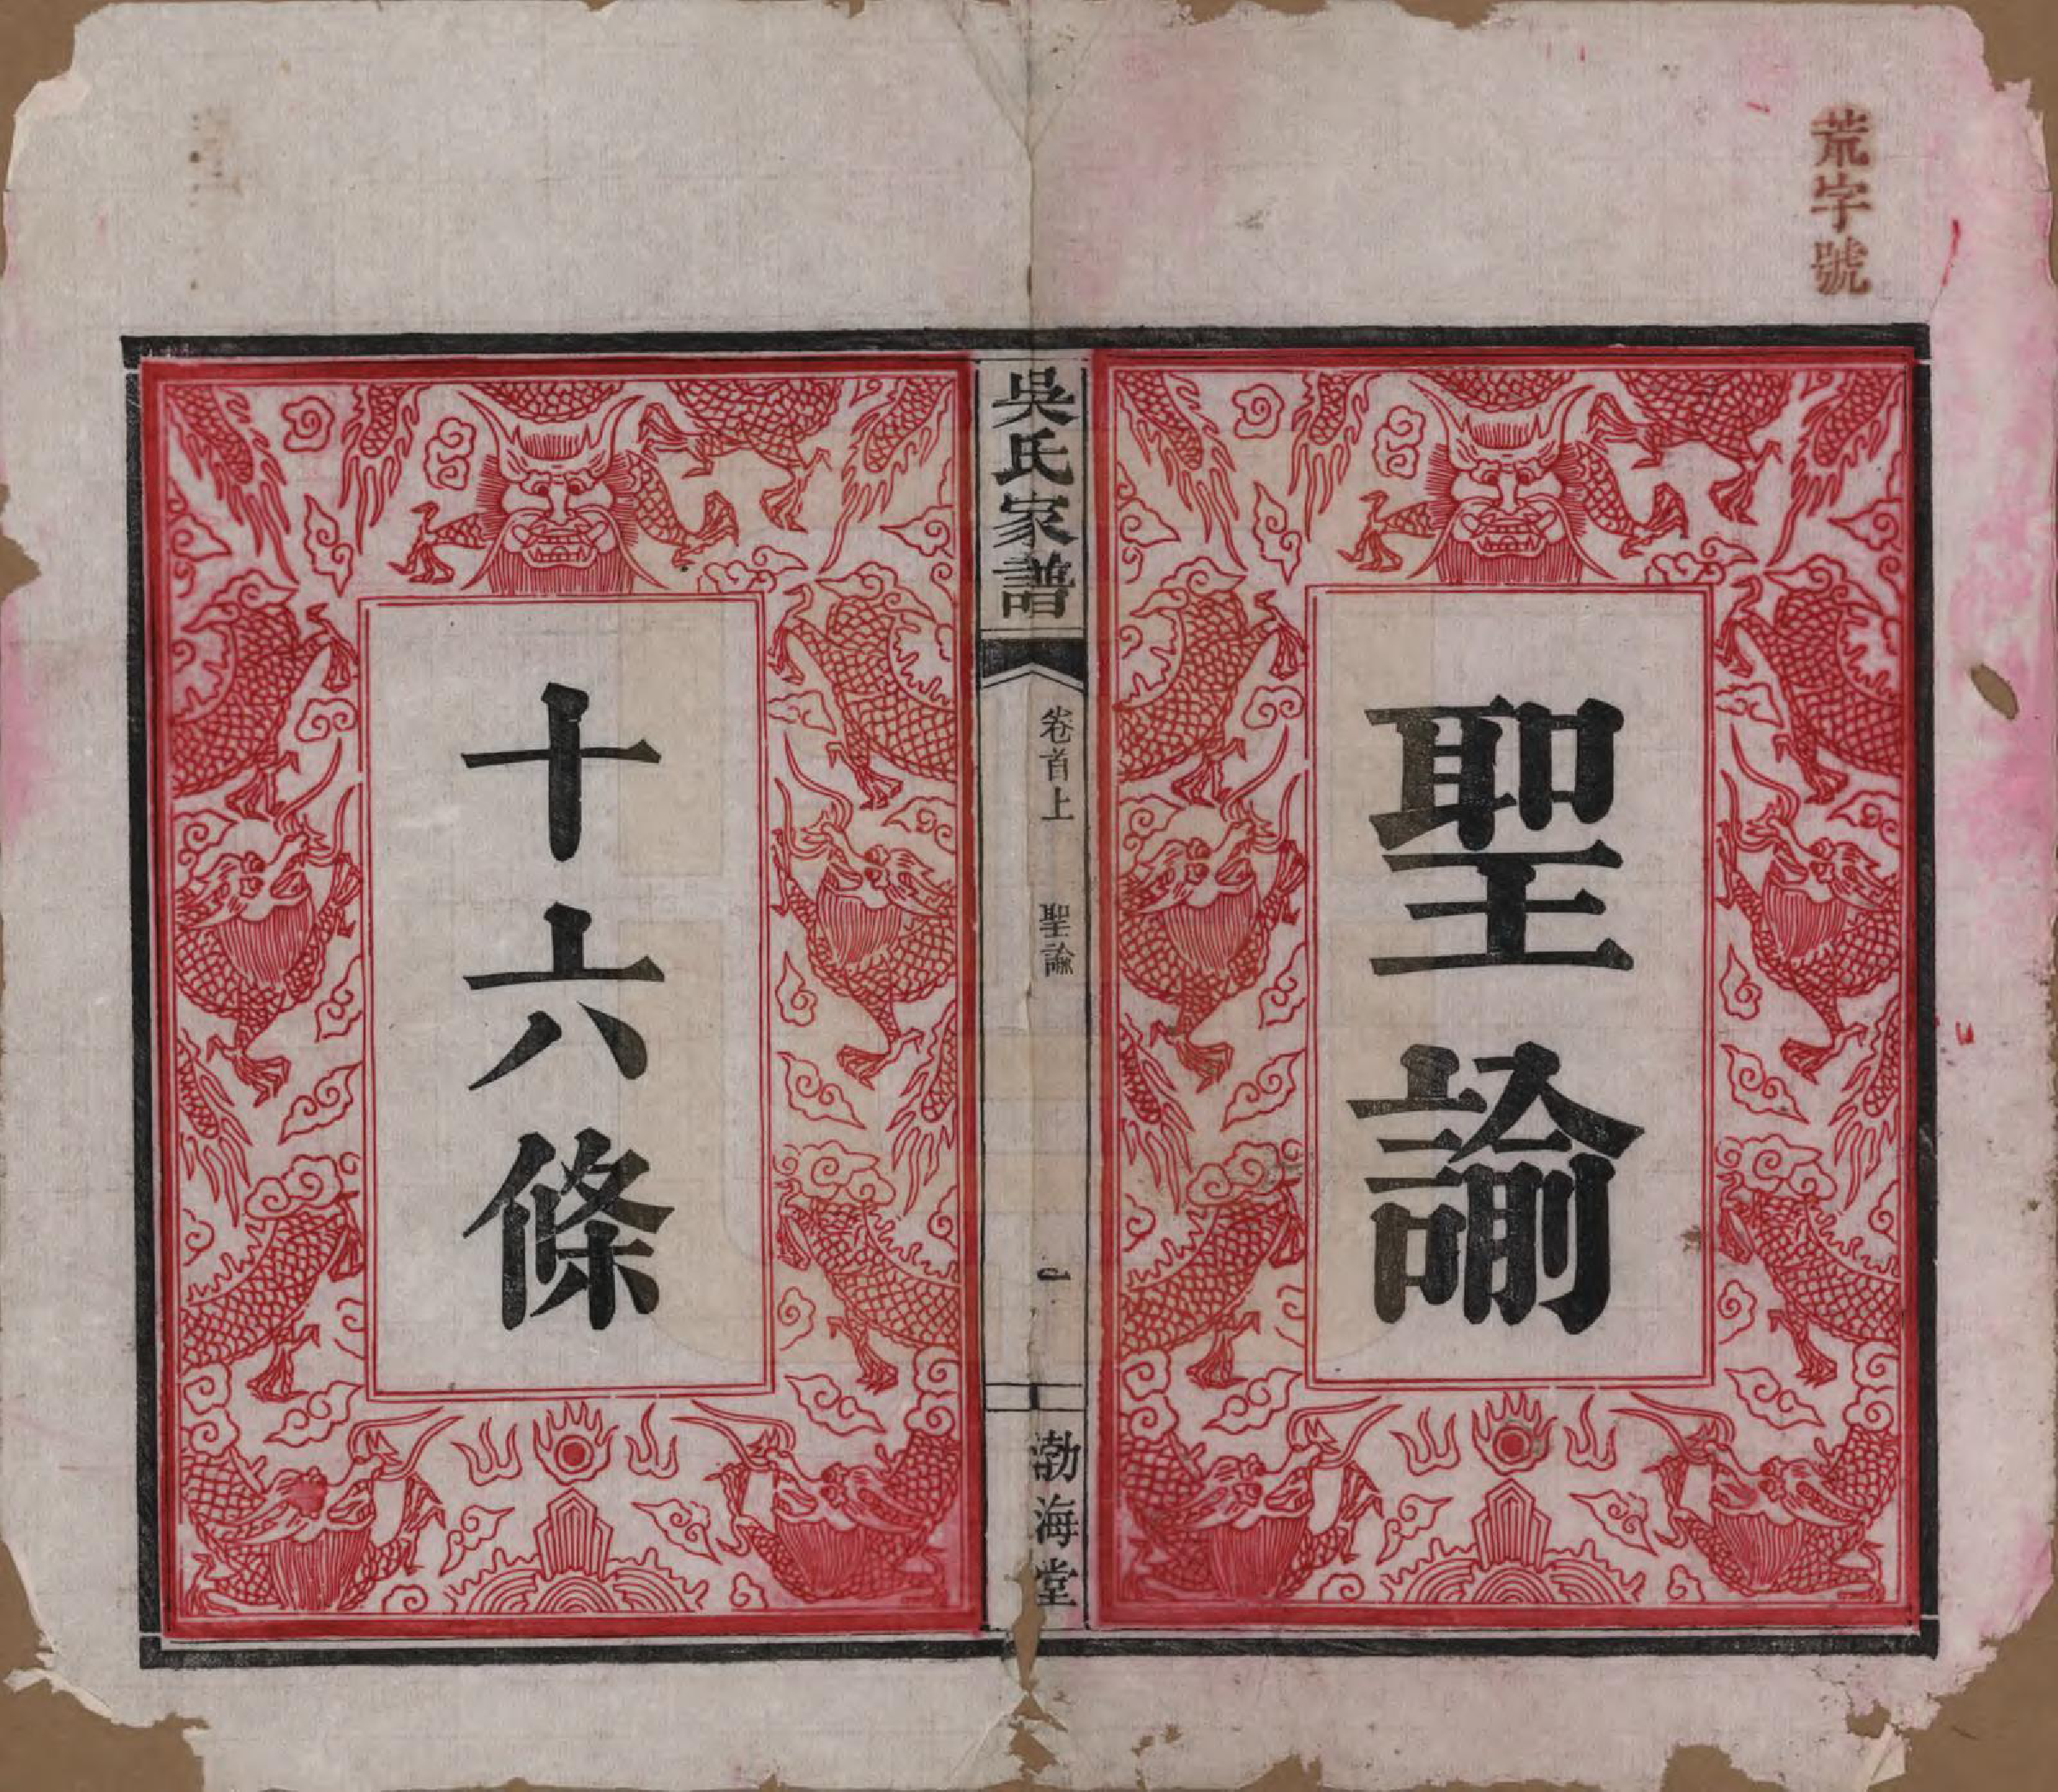 荒字號
聖諭
吳氏家譜
卷首上 聖諭
一
渤海堂
十六條